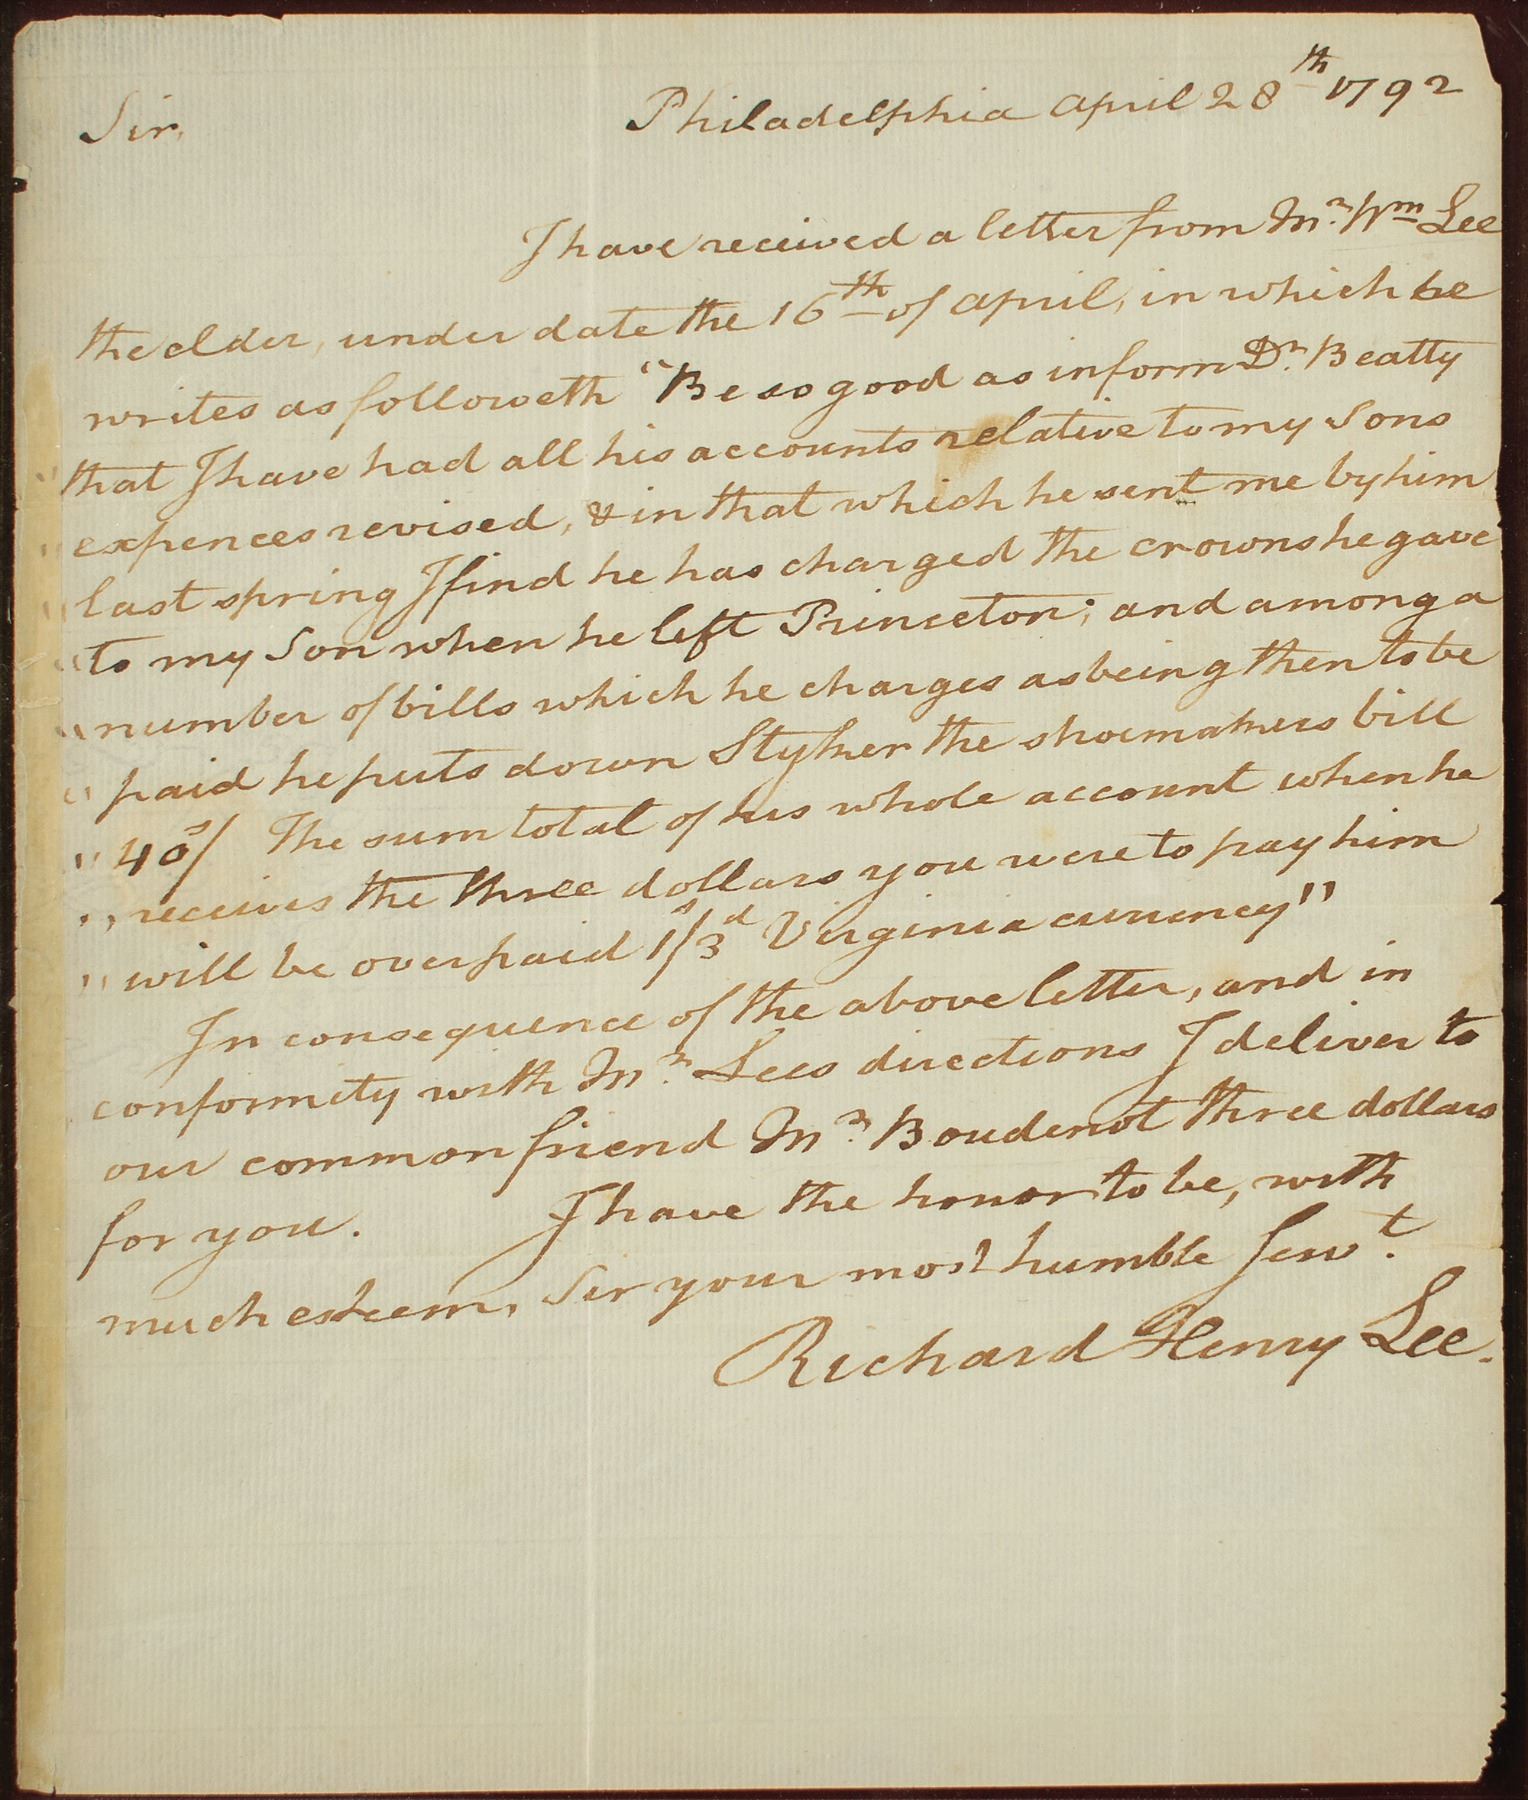 Philadelphia April 28th 1792
Sir,
I have received a letter from Mr. Wm Lee
the elder, under date the 16th of April, in which he
writes as followeth "Be so good as inform Dr. Beatty
"that I have had all his accounts relative to my Sons
"expences revised, & in that which he sent me by him
"last spring I find he has charged the crowns he gave
"to my Son when he left Princeton; and among a
"number of bills which he charges as being then to be
"paid he puts down Styker the shoemakers bill
"40s/ The sum total of his whole account when he
"receives the three dollars you were to pay him
"will be overpaid 1s/3d Virginia currency"
In consequence of the above letter, and in
conformity with Mr. Lees directions I deliver to
our common friend Mr. Boudenot three dollars
for you. I have the honor to be, with
much esteem, Sir your most humble Servt.
Richard Henry Lee.